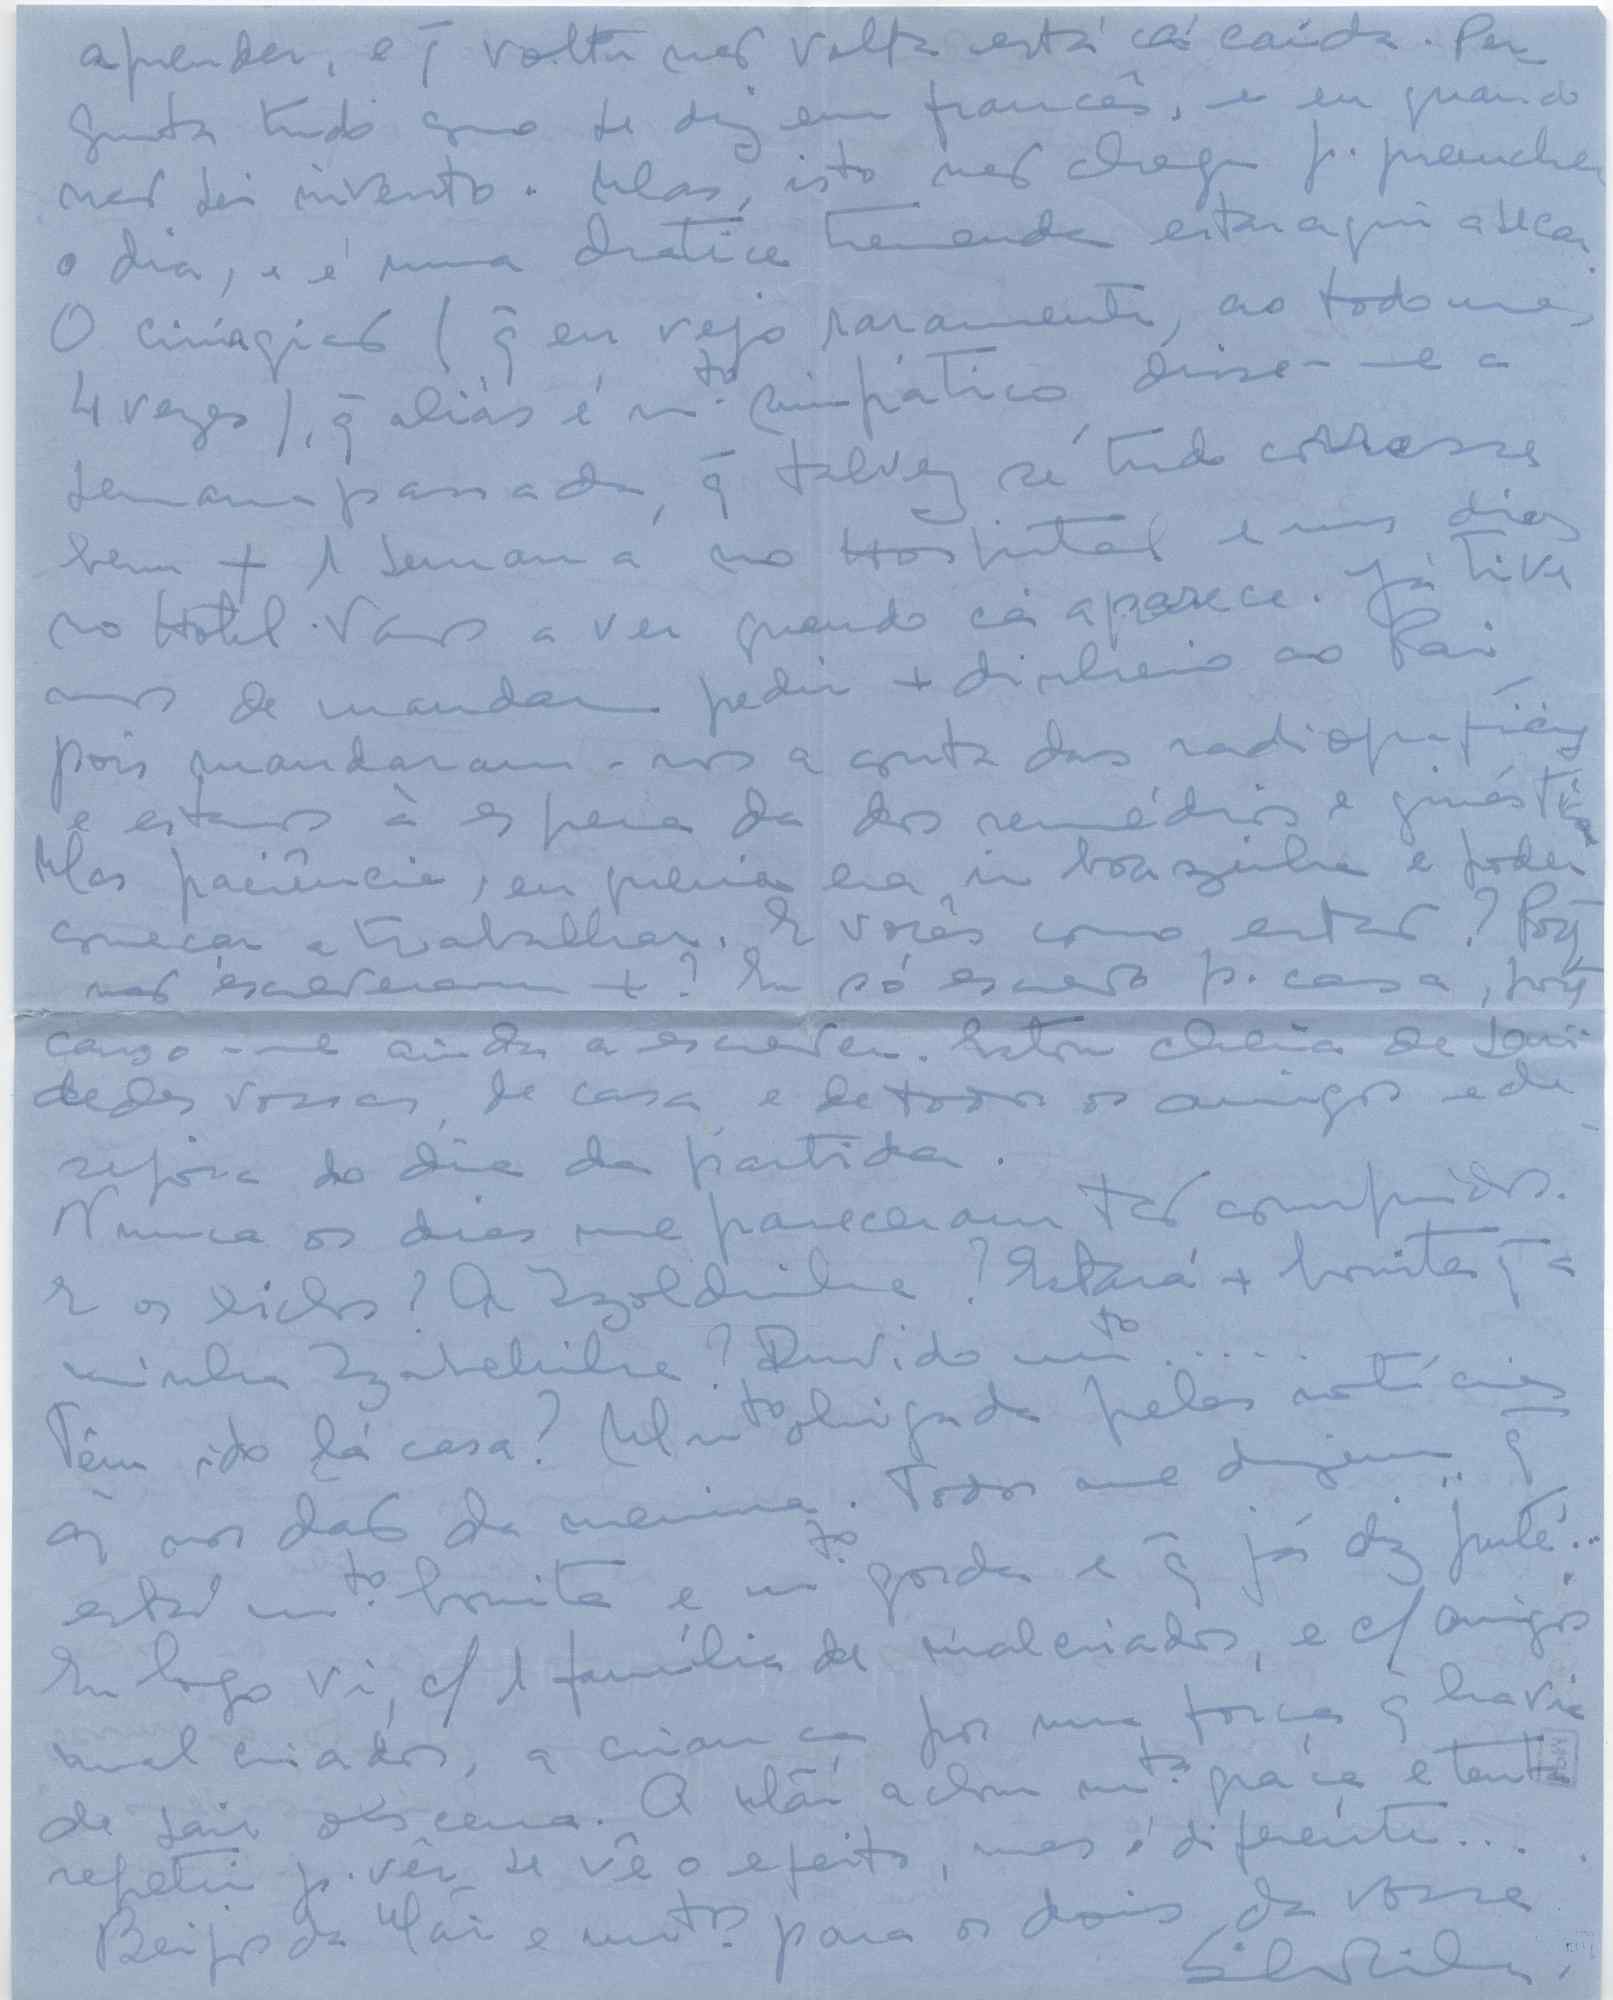 aprender, e q̄ volta não volta está cá caída. Per
gunta tudo como se diz em francês, e eu quando
não sei invento. Mas, isto não chega p. preencher
o dia, e é uma chatice tremenda estar aqui a secar.
O cirurgião (q̄ eu vejo raramente, ao todo umas
4 vezes), q̄ aliás é m.to simpático disse-me a
semana passada, q̄ talvez se tudo corresse
bem + 1 semana no Hospital e uns dias
no Hotel. Vamos a ver quando cá aparece. Já tive
mos de mandar pedir + dinheiro ao Pai
pois mandaram-nos a conta das radiografias
e estamos à espera da dos remédios e ginástica
Mas paciência, eu queria era ir boazinha e poder
começar a trabalhar. E vocês como estão? Porq̄
não escreveram +? Eu só escrevo p. casa, porq̄
canso-me ainda a escrever. Estou cheia de sau-
dades vossas, de casa e de todos os amigos e de
do dia da partida.
Nunca os dias me pareceram tão compridos.
E os bichos? A Izoldinha? Estará + bonita q̄ a
minha Izabelinha? Duvido m.to.....
Têm ido lá casa? M.to obrigada pelas notícias
q̄ nos dão da menina. Todos me dizem q̄
está m.to bonita e m.to gorda e q̄ já diz puté...
Eu logo vi, c/ 1 família de malcriados, e c/ amigos
mal criados, a criança por uma força q̄ havia
de sair obscena. A Mãi achou m.ta graça e tenta
repetir p. vêr se vê o efeito, mas é diferente...
Beijos da Mãi e m.tos para os dois da vossa